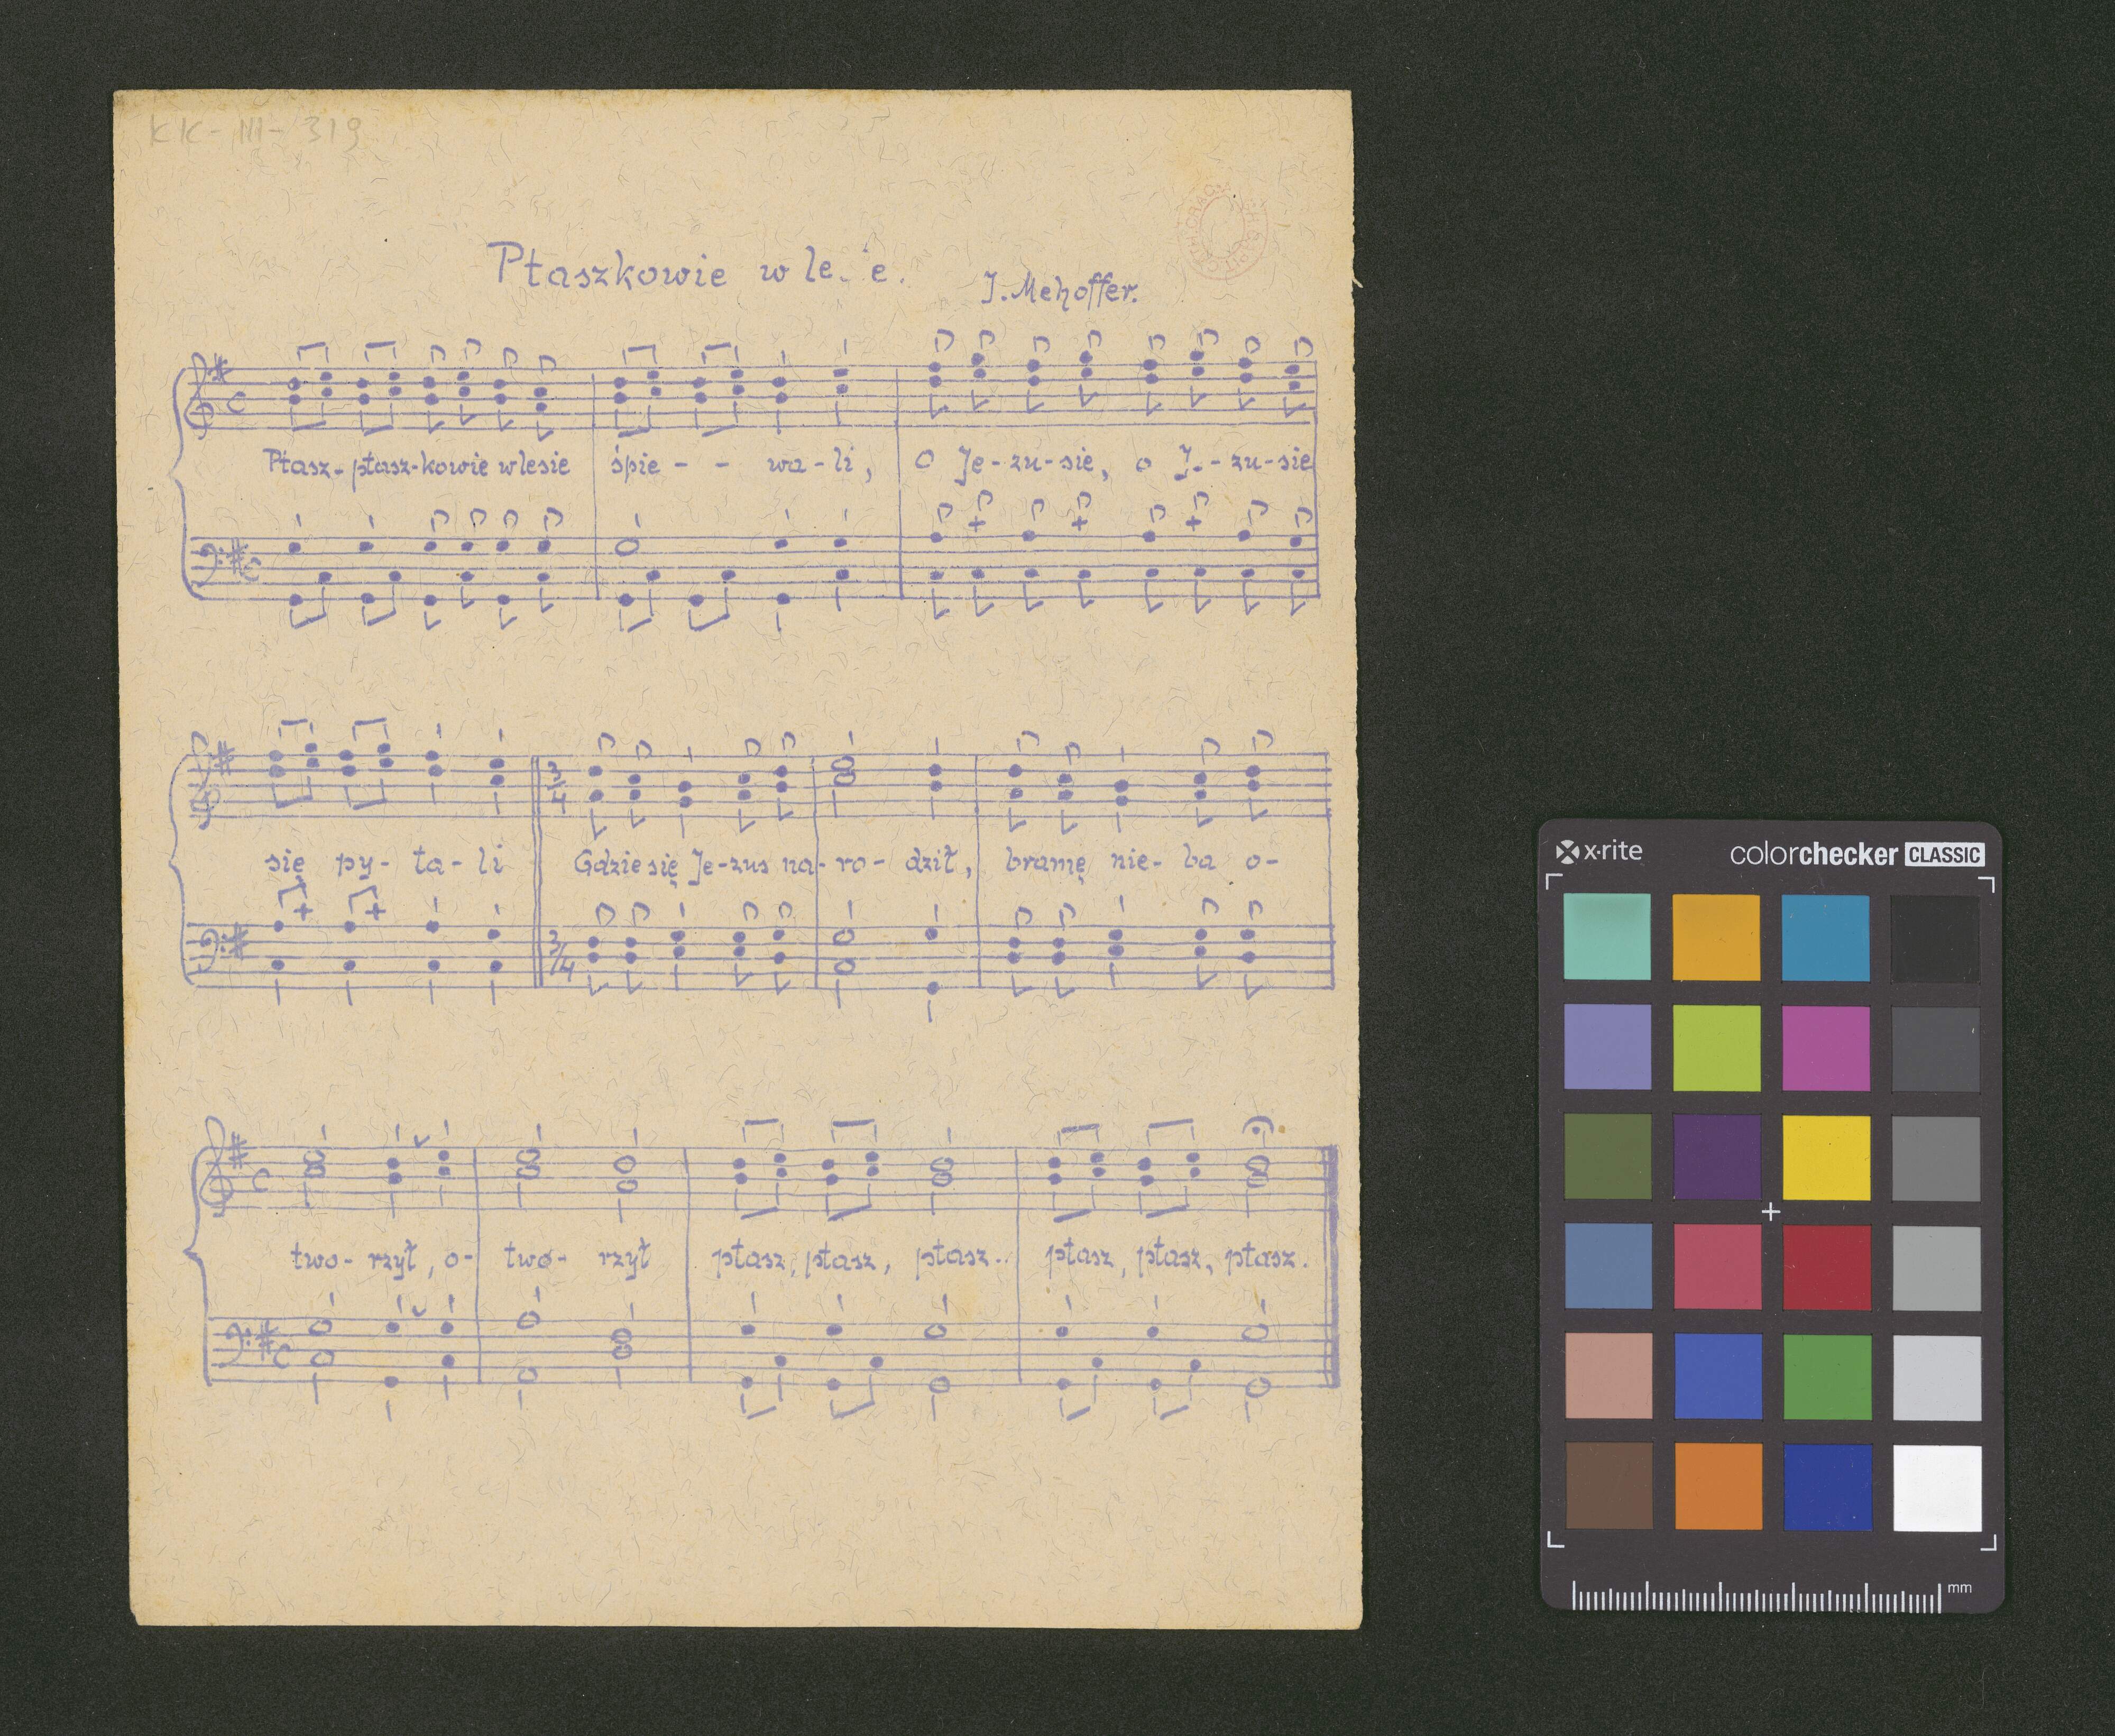 KK-III-319
Ptaszkowie w le e.
J. Mehoffer.
Ptasz-ptasz-kowie w lesie śpie - - wa-li, O Je-zu-sie, o J.-zu-sie
się py-ta-li Gdzie się Je-zus na-ro-dził, bramę nie-ba o-
3/4
3/4
two-rzył, o-two-rzył ptasz, ptasz, ptasz.. ptasz, ptasz, ptasz.
x·rite
colorchecker CLASSIC
mm